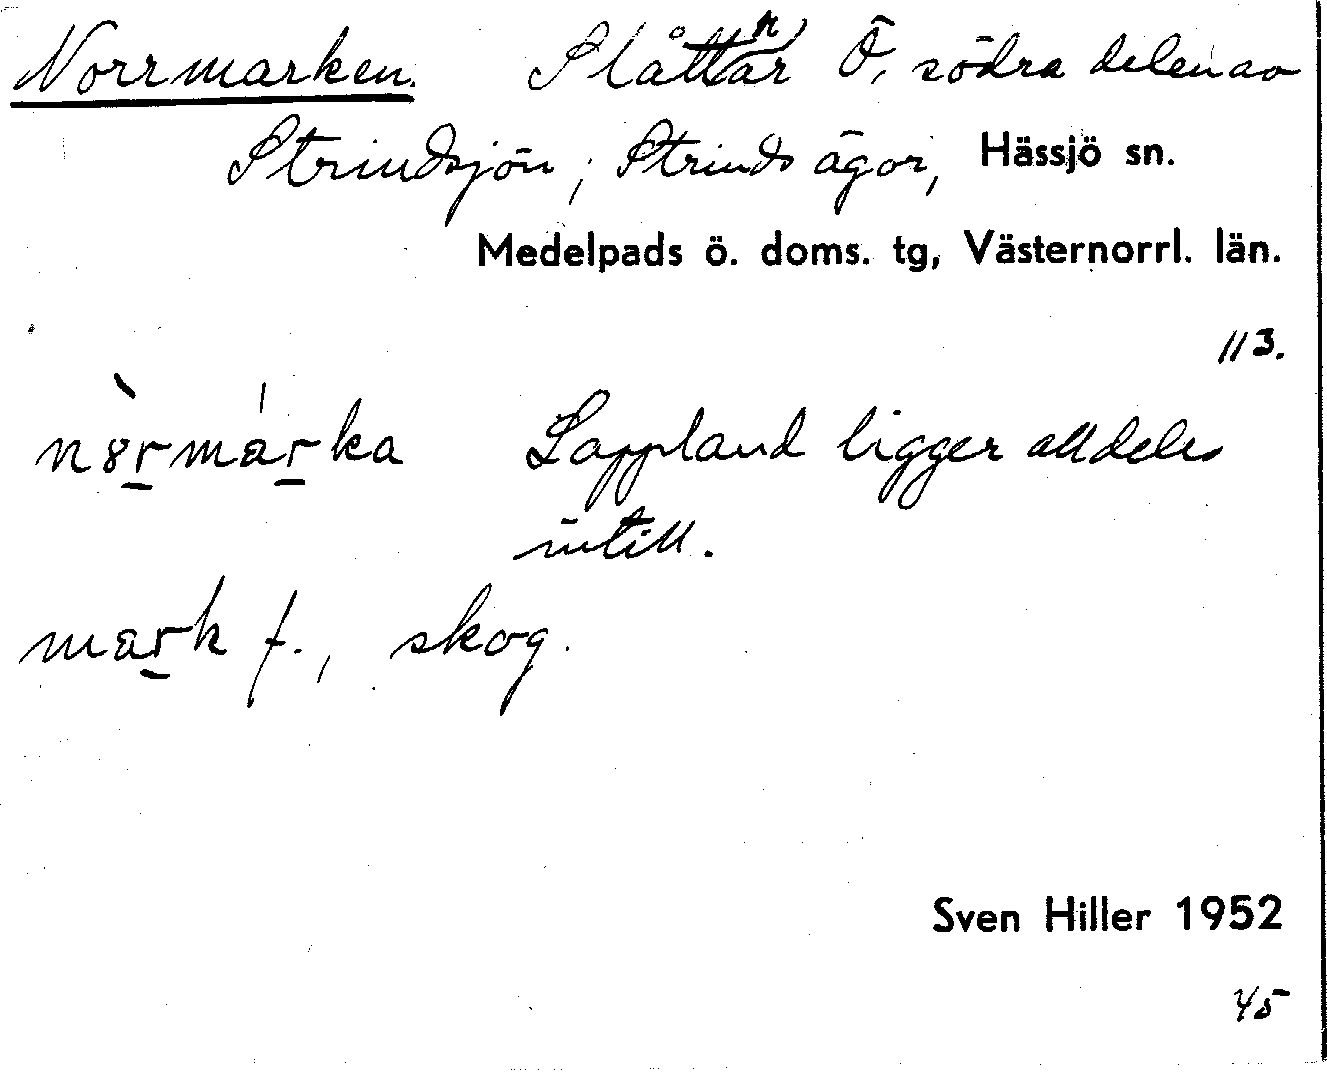 Norrmarken. Slåttar Ö, södra delen av
Strindsjön; Strinds ägor, Hässjö sn.
Medelpads ö. doms. tg, Västernorrl. län.
113.
Lappland ligger alldeles
intill.
mark f., skog.
Sven Hiller 1952